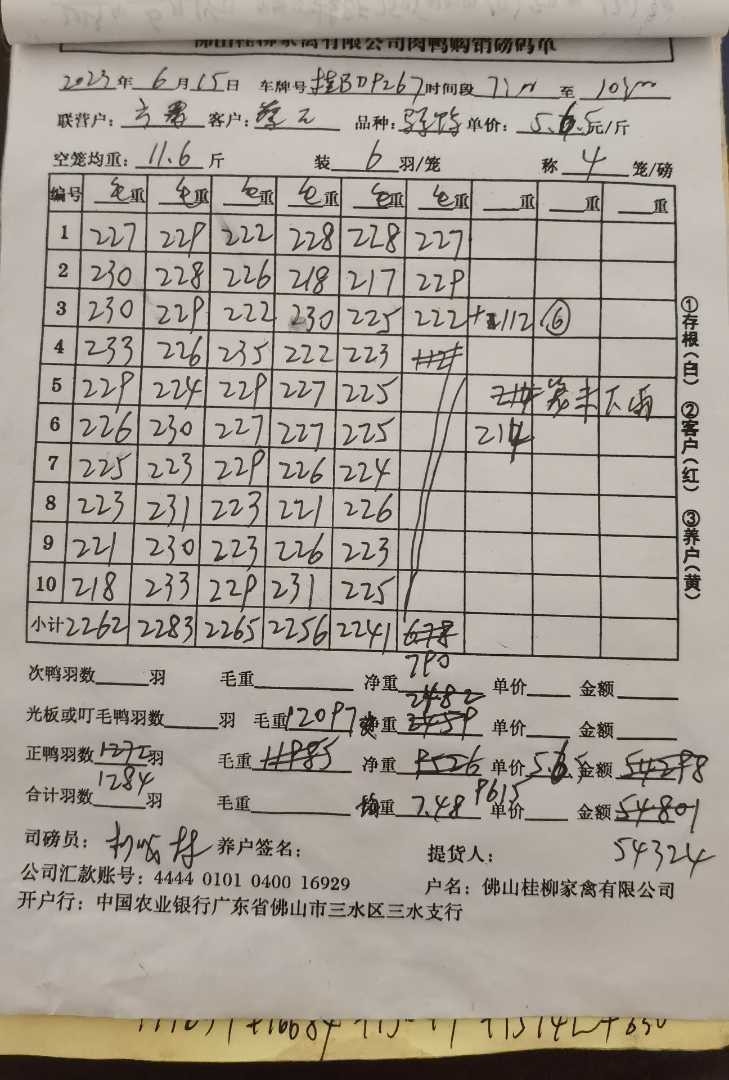 佛山桂柳家禽有限公司肉鸭购销磅码单
2023年 6 月 15 日 车牌号 桂BDP267 时间段 至
联营户： 客户： 品种： 单价： 5.65 元/斤
空笼均重： 11.6 斤 装 6 羽/笼 称 4 笼/磅
编号 毛重 毛重 毛重 毛重 毛重 毛重 重 重 重
1 227 229 222 228 228 227
2 230 228 226 218 217 229
3 230 229 222 230 225 222 +112 ⑥
4 233 226 235 222 223 112
5 229 224 229 227 225 214 笼未下雨
6 226 230 227 227 225 214
7 225 223 229 226 224
8 223 231 223 221 226
9 221 230 223 226 223
10 218 233 229 231 225
小计 2262 2283 2265 2256 2241 678
790
次鸭羽数 羽 毛重 净重 2482 单价 金额
光板或叮毛鸭羽数 羽 毛重 12097 净重 2459 单价 金额
正鸭羽数 1272 羽 毛重 11985 净重 9526 单价 5.65 金额 54298
合计羽数 1284 羽 毛重 均重 7.48 9615 单价 金额 54801
司磅员： 养户签名： 提货人： 54324
公司汇款账号：4444 0101 0400 16929 户名：佛山桂柳家禽有限公司
开户行：中国农业银行广东省佛山市三水区三水支行
①存根（白） ②客户（红） ③养户（黄）